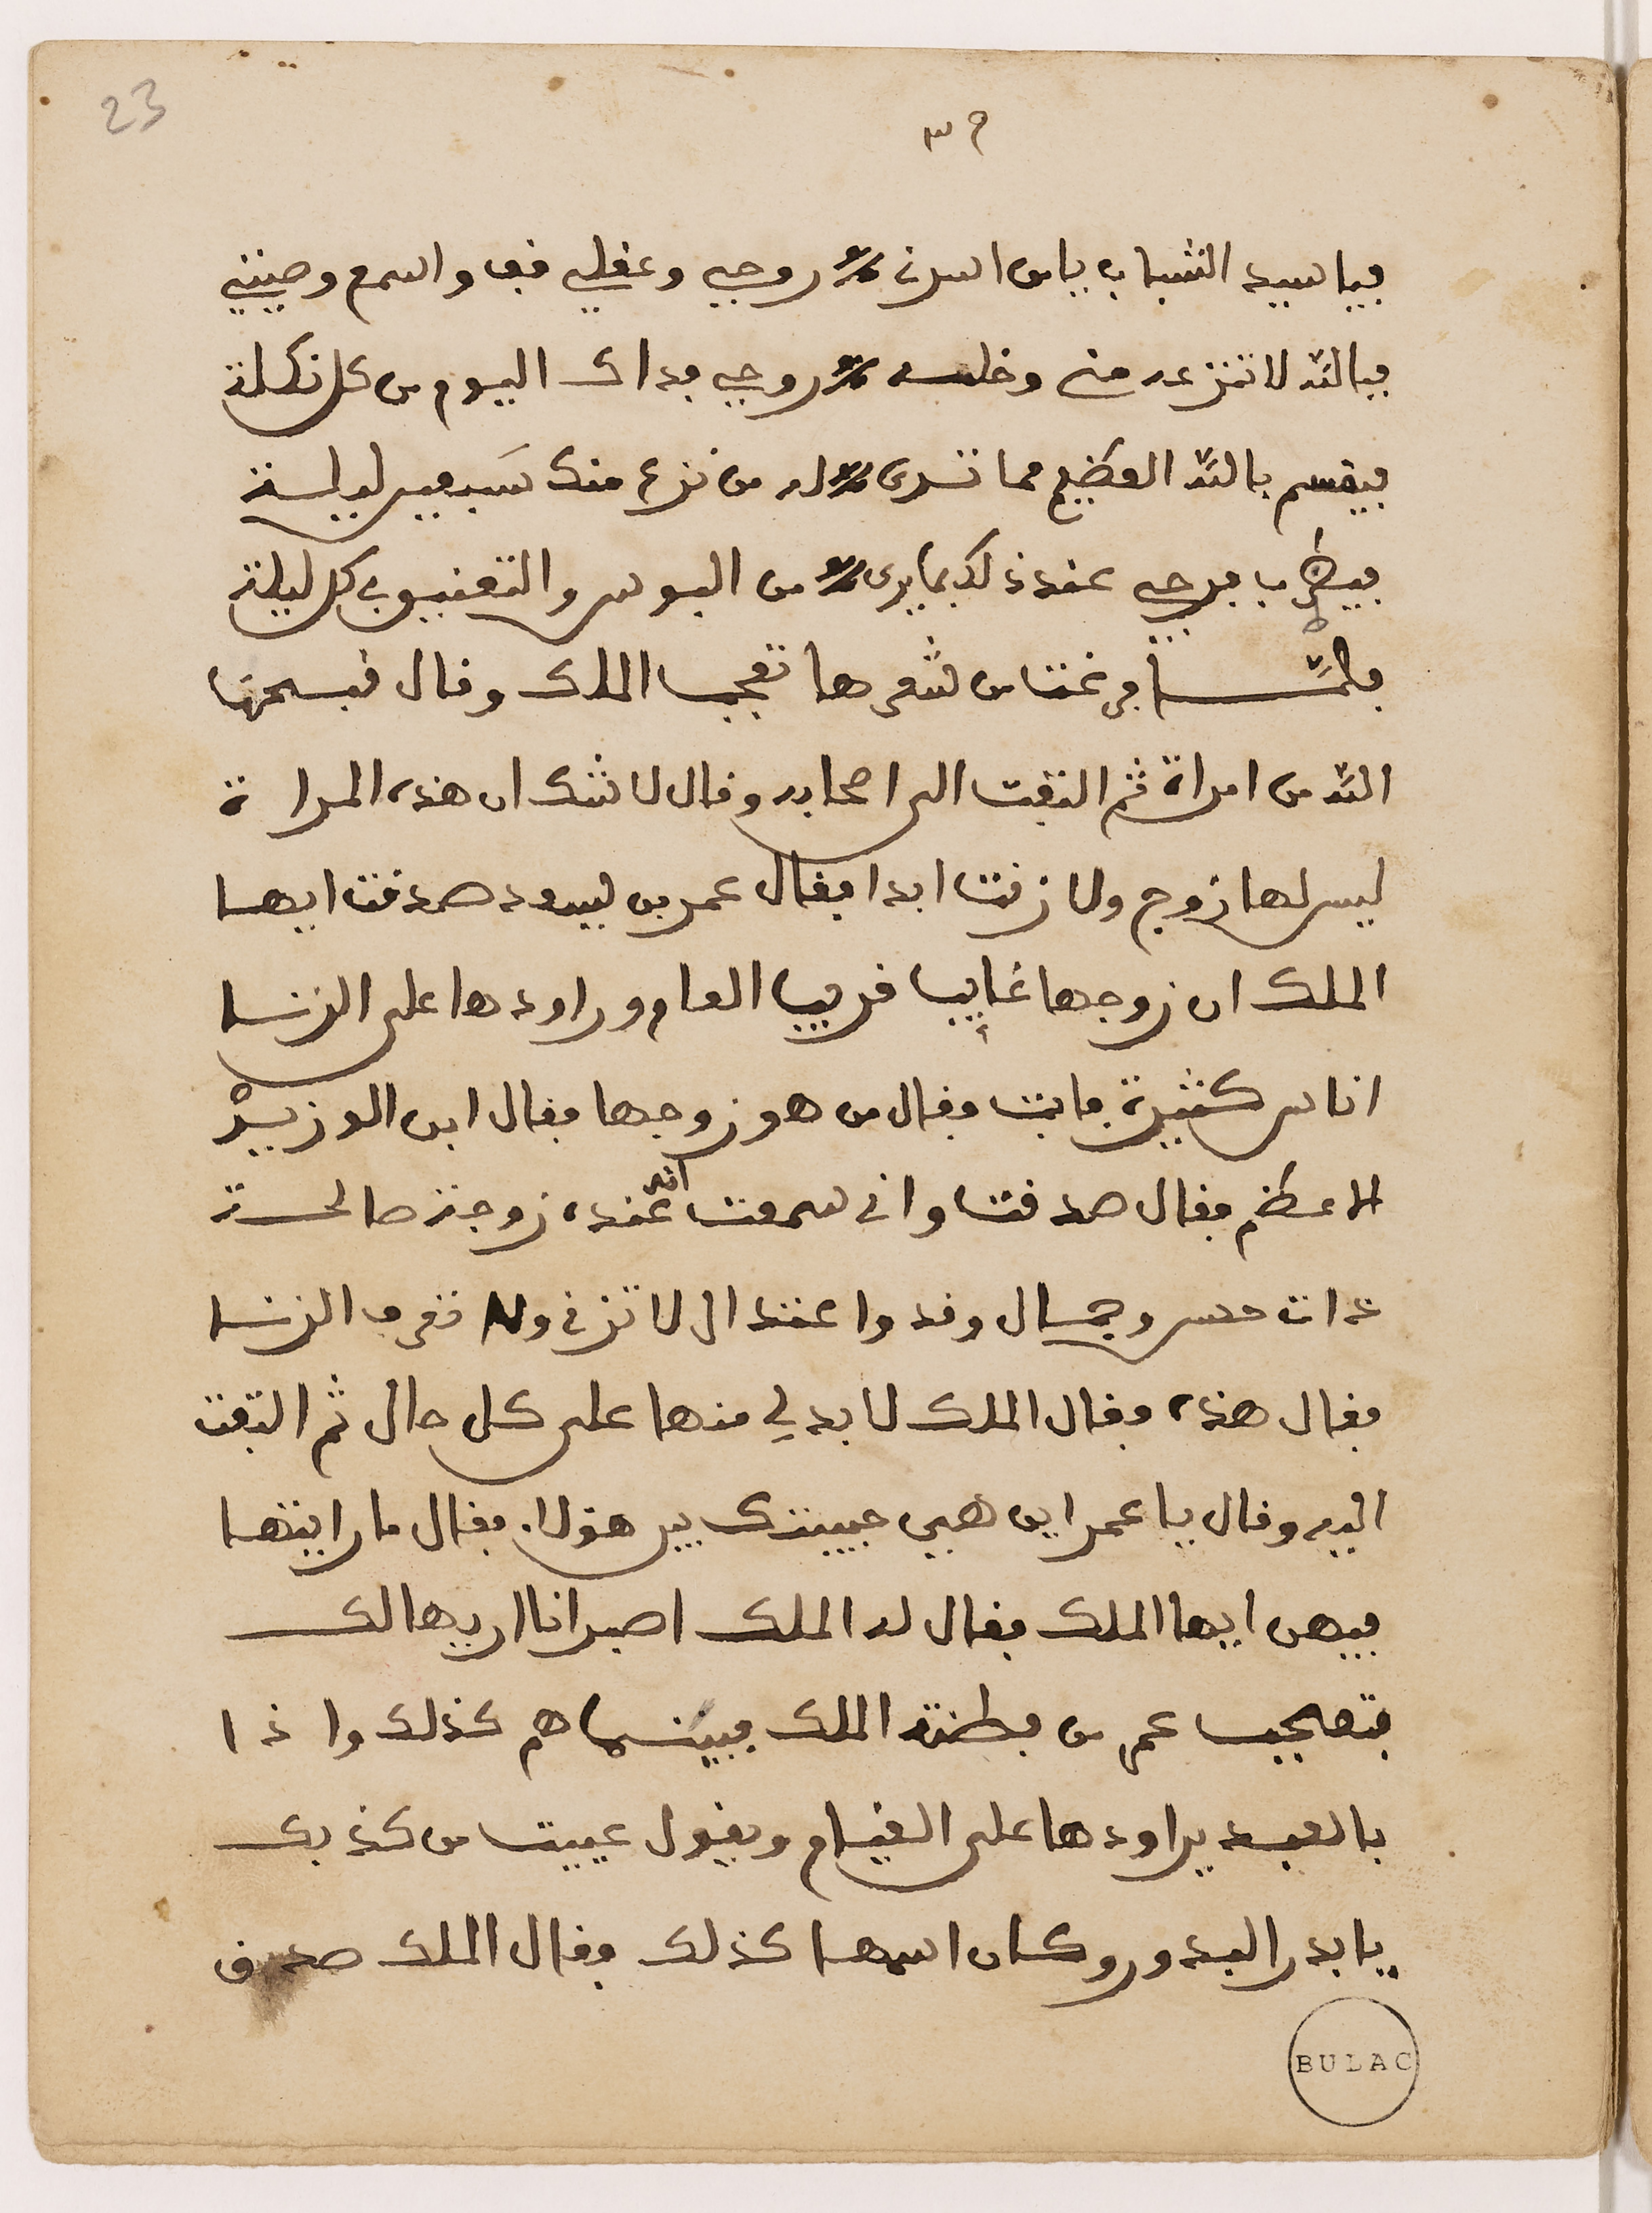 23
٢٣
فيا سيد الشباب يا من اسرت روحي وعقلي قف واسمع وصيتي
فبالله لا تنزعه مني وخله روحي فداك اليوم من كل نكلة
فيقسم بالله العظيم فما ترى له من نزع منك سبعين ليلة
فيطرب فرجي عند ذلك بما يرى من البوس والتعنيق في كل ليلة
فلما فرغت من شعرها تعجب الملك وقال قبحها
الله من امراة ثم التفت الى اصحابه وقال لا شك ان هذه المراة
ليس لها زوج ولا زنت ابدا فقال عمر بن ليسود صدقت ايها
الملك ان زوجها غايب قريب العام وراودها على الزنا
اناس كثيرة فابت فقال من هو زوجها فقال ابن الوزير
الاعظم فقال صدقت واني سمعت ان عنده زوجة صالحة
ذات حسن وجمال وقد واعتدال لا تزني ولا تعرف الزنا
فقال هذه فقال الملك لا بد لي منها على كل حال ثم التفت
اليه وقال يا عمر اين هي حبيبتك بين هؤلاء فقال ما رايتها
فيهن ايها الملك فقال له الملك اصبر انا اريها لك
فتعجب عمر من فطنة الملك فبينما هم كذلك واذا
بالعبد يراودها على القيام ويقول عييت من كذبك
يا بدر البدور وكان اسمها كذلك فقال الملك صدق
BULAC